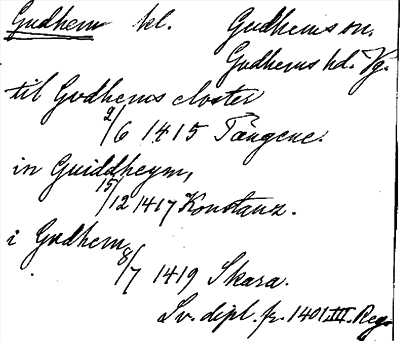 Gudhem kl. Gudhems sn.
Gudhems hd. Vg.
til Gudhems closter
2/6 1415 Tängene.
in Guiddheym,
15/12 1417 Konstanz.
i Gudhem
8/7 1419 Skara.
Sv. dipl. fr. 1401 III. Reg.